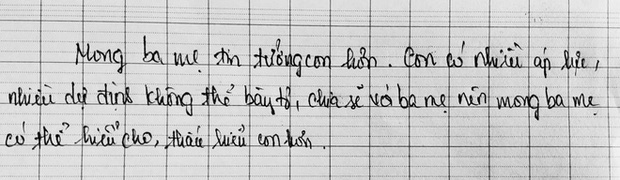 Mong ba mẹ tin tưởng con hơn. Con có nhiều áp lực,
nhiều dự định không thể bày tỏ, chia sẻ với ba mẹ nên mong ba mẹ
có thể hiểu cho, thấu hiểu con hơn.